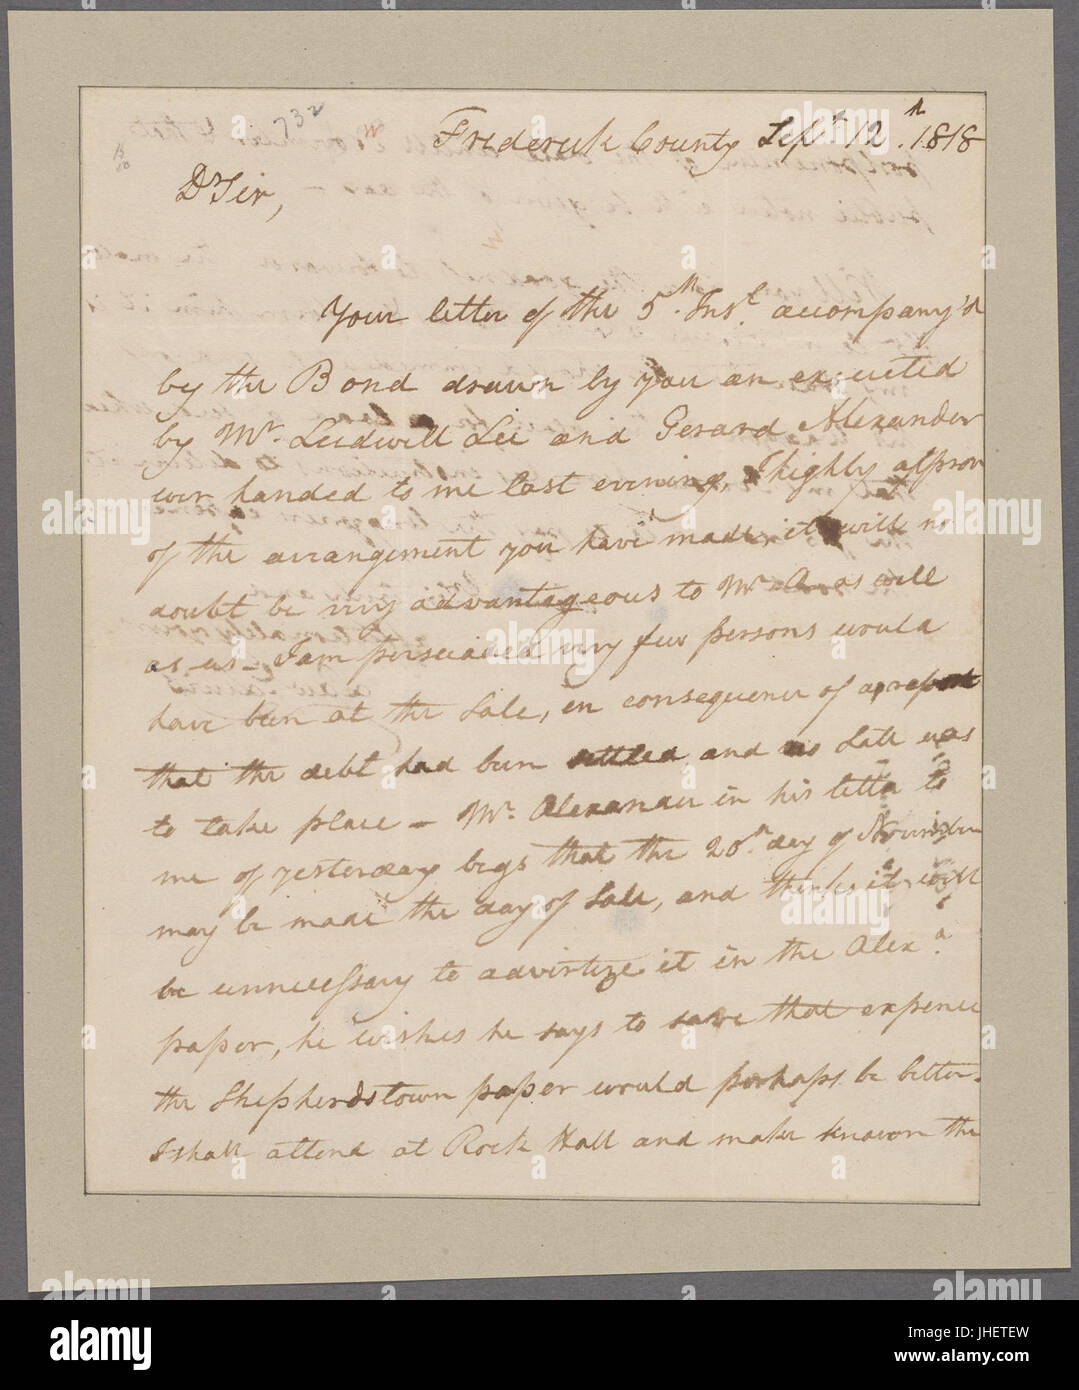 732
Frederick County Sept. 12th. 1818
Dr Sir,
Your letter of the 5th. Inst. accompany'd
by the Bond drawn by you an executed
by Mr. Ludwell Lee and Gerard Alexander
wer handed to me last evening, I highly approv
of the arrangement you have made, it will no
doubt be very advantageous to Mr A. as well
as us – I am persuaded very few persons would
have been at the Sale, in consequence of a report
that the debt had been settled and no Sale was
to take place – Mr. Alexander in his letter to
me of yesterday begs that the 20th. day of November
may be made the day of Sale, and thinks it will
be unnecessary to advertize it in the Alexa.
paper, he wishes he says to save that expence
the Shepherdstown paper would perhaps be better.
I shall attend at Rock Hall and make known the
alamy
Image ID: JHETEW
www.alamy.com